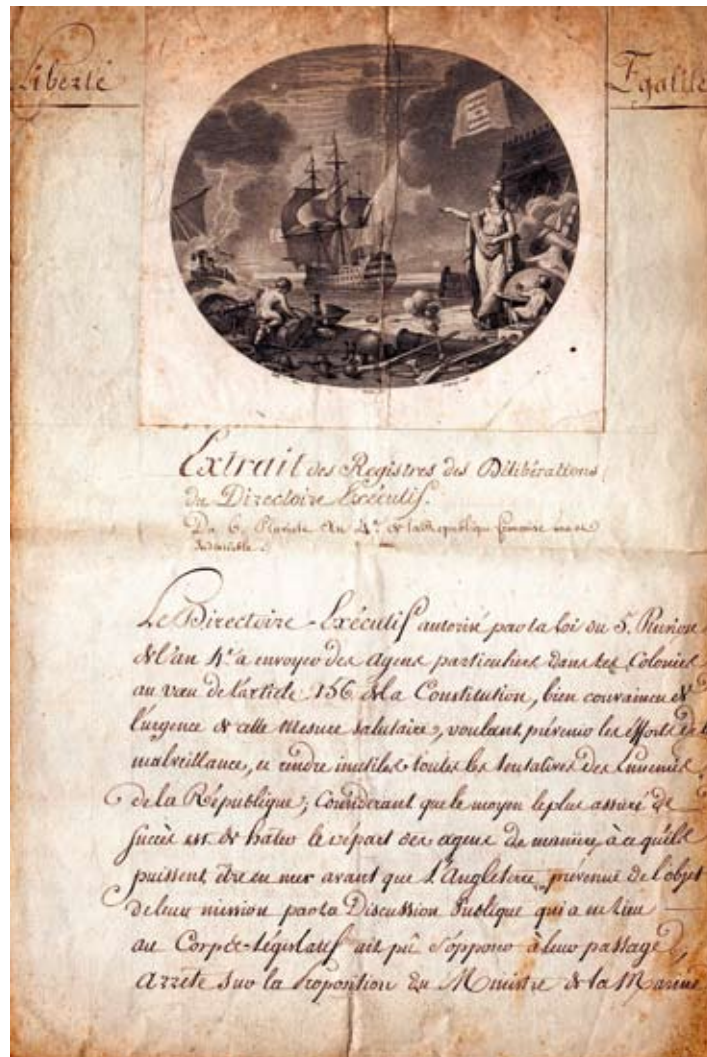 Liberté
Egalité
Extrait des Registres des Délibérations
du Directoire Exécutif.
Du 6. Pluviose An 4.e de la République françoise une et
Indivisible.
Le Directoire-Exécutif autorisé par la loi du 5. Pluviose
de l'an 4.e à envoyer des agens particuliers dans les Colonies
au vœu de l'article 156 de la Constitution, bien convaincu de
l'urgence de cette mesure salutaire, voulant prévenir les éfforts de la
malveillance, et rendre inutiles toutes les tentatives des Ennemis
de la République; Considerant que le moyen le plus assuré de
succès est de hâter le départ des agens de manière à ce qu'ils
puissent être en mer avant que l'Angleterre prévenue de l'objet
de leur mission par la Discussion Publique qui a eu lieu
au Corps-Législatif ait pû s'opposer à leur passage,
Arrête sur la Proposition du Ministre de la Marine